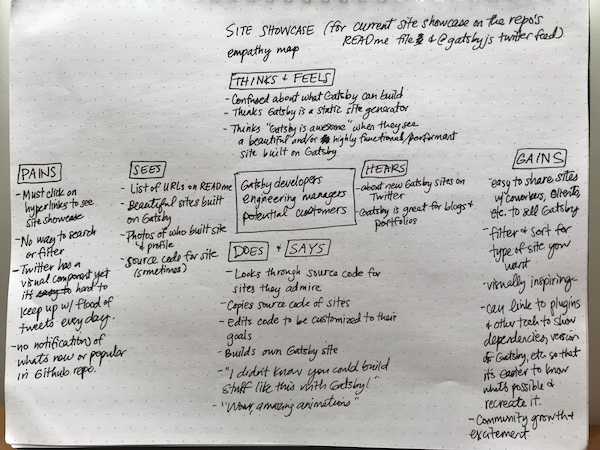 SITE SHOWCASE (for current site showcase on the repo's
README file & @gatsbyjs twitter feed)
empathy map
THINKS & FEELS
- Confused about what Gatsby can build
- Thinks Gatsby is a static site generator
- Thinks "Gatsby is awesome" when they see
a beautiful and/or highly functional/performant
site built on Gatsby
PAINS
- Must click on
hyperlinks to see
site showcase
- No way to search
or filter
- Twitter has a
visual component yet
it's hard to
keep up w/ flood of
tweets every day.
- no notification of
what's new or popular
in Github repo.
SEES
- List of URLs on README
- Beautiful sites built
on Gatsby
- Photos of who built site
& profile
- Source code for site
(sometimes)
Gatsby developers
engineering managers
potential customers
HEARS
- about new Gatsby sites on
Twitter
- Gatsby is great for blogs &
portfolios
DOES & SAYS
- Looks through source code for
sites they admire
- Copies source code of sites
- Edits code to be customized to their
goals
- Builds own Gatsby site
- "I didn't know you could build
stuff like this with Gatsby!"
- "Wow, amazing animations"
GAINS
- easy to share sites
w/ coworkers, clients,
etc. to sell Gatsby
- filter & sort for
type of site you
want
- visually inspiring
- can link to plugins
& other tech to show
dependencies, version
of Gatsby, etc. so that
it's easier to know
what's possible &
recreate it.
- Community growth &
excitement